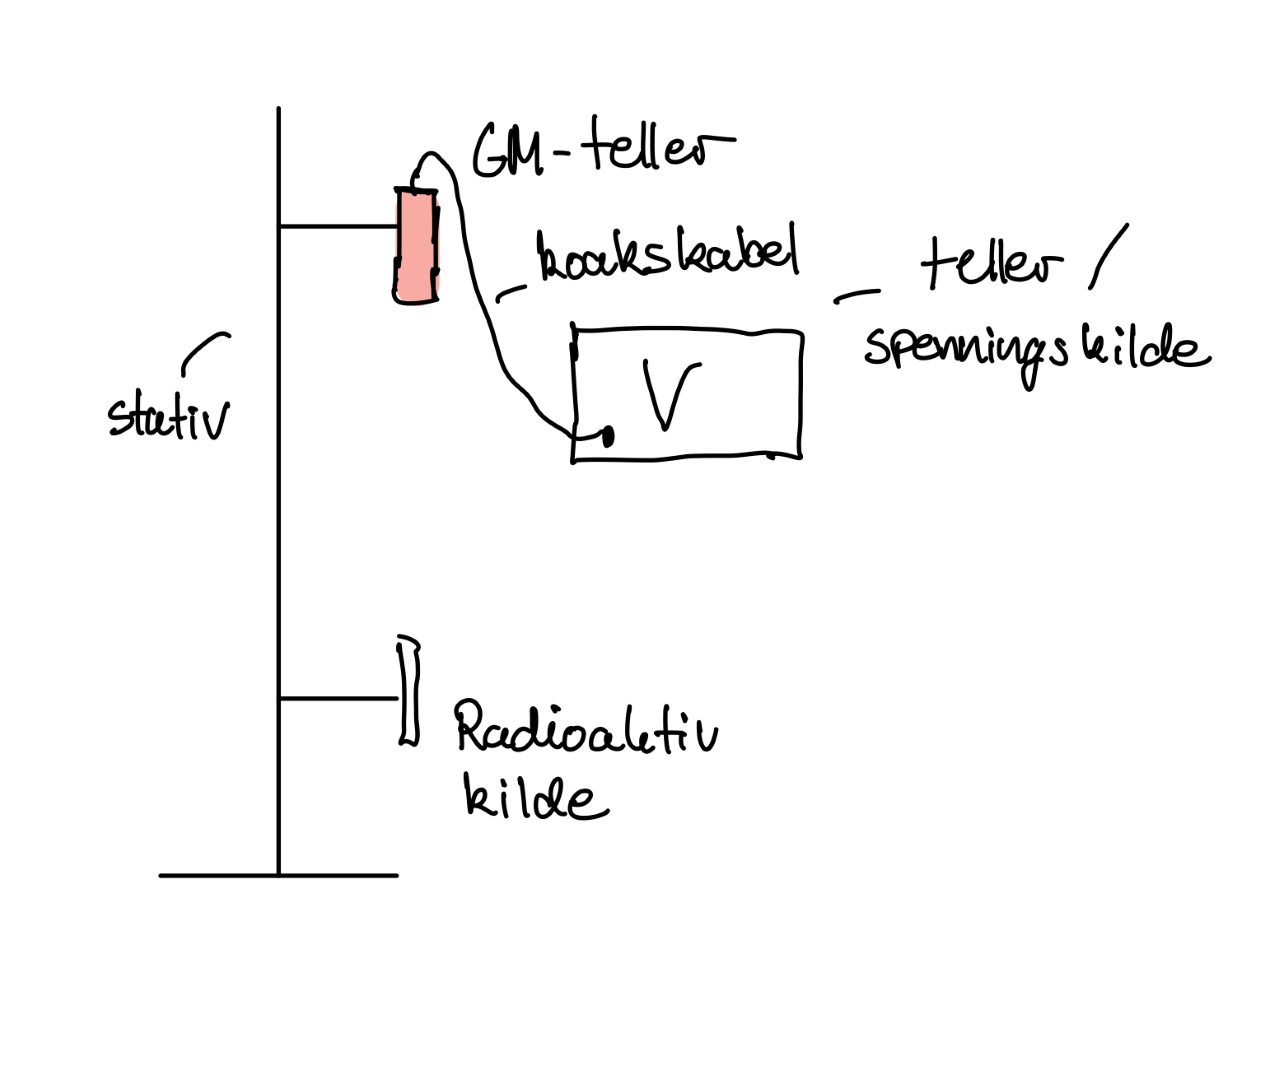 GM-teller
koakskabel
teller /
spenningskilde
stativ
V
Radioaktiv
kilde